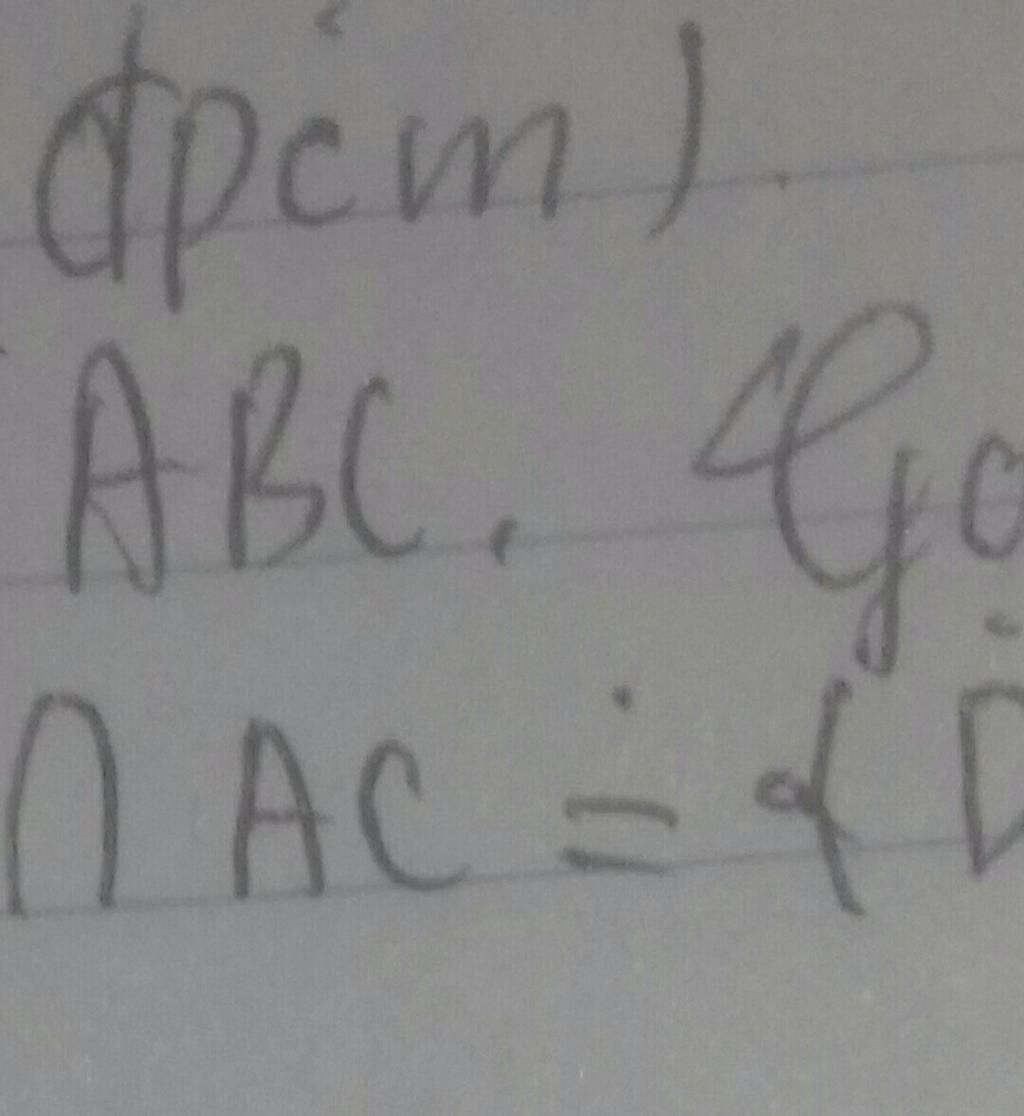 đpcm)
ABC. Gọ
∩ AC = {D